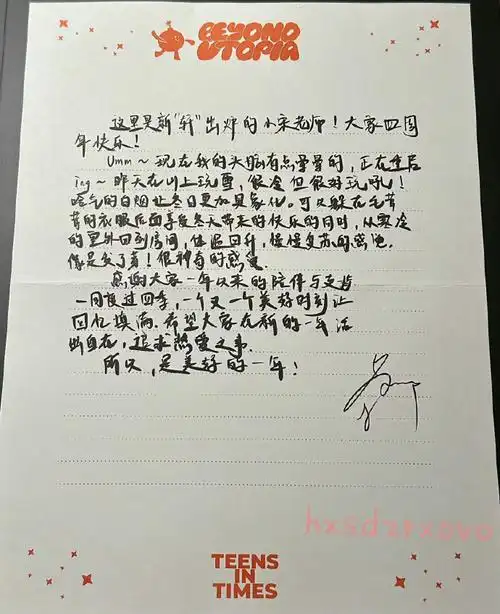 BEYOND
UTOPIA
这里是新“轩”出炉的小宋老师！大家四周
年快乐！
Umm～现在我的头脑有点晕晕的，正在重启
ing～昨天在山上玩雪，很冷但很好玩吼！
哈气的白烟让冬日更加具象化。可以躲在毛茸
茸的衣服后面享受冬天带来的快乐的同时，从寒冷
的室外回到房间，体温回升，慢慢复苏的感觉
像是发了芽！很神奇的感觉.
感谢大家一年以来的陪伴与支持
一同度过四季，一个又一个美好时刻让
回忆填满.希望大家在新的一年活
出自在，追求热爱之事.
所以，是美好的一年！
hxsdzrxovo
TEENS
IN
TIMES